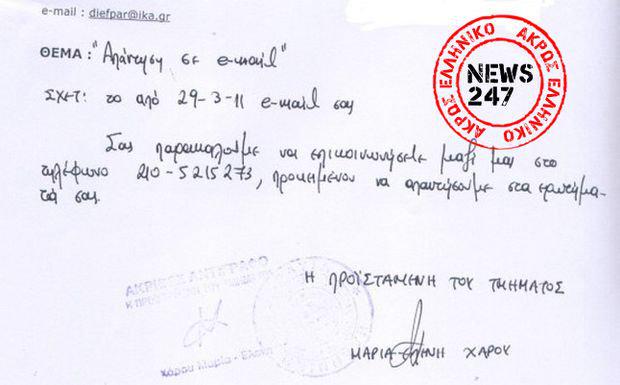 e-mail : diefpar@ika.gr
ΘΕΜΑ : "Απάντηση σε e-mail"
ΣΧΕΤ: το από 29-3-11 e-mail σας
Σας παρακαλούμε να επικοινωνήσετε μαζί μας στο
τηλέφωνο 210-5215273, προκειμένου να απαντήσουμε στα ερωτήμα-
τά σας.
Η ΠΡΟΪΣΤΑΜΕΝΗ ΤΟΥ ΤΜΗΜΑΤΟΣ
ΜΑΡΙΑ-ΕΛΕΝΗ ΧΑΡΟΥ
ΑΚΡΙΒΕΣ ΑΝΤΙΓΡΑΦΟ
Χάρου Μαρία - Ελένη
ΑΚΡΩΣ ΕΛΛΗΝΙΚΟ
NEWS
247
ΑΚΡΩΣ ΕΛΛΗΝΙΚΟ